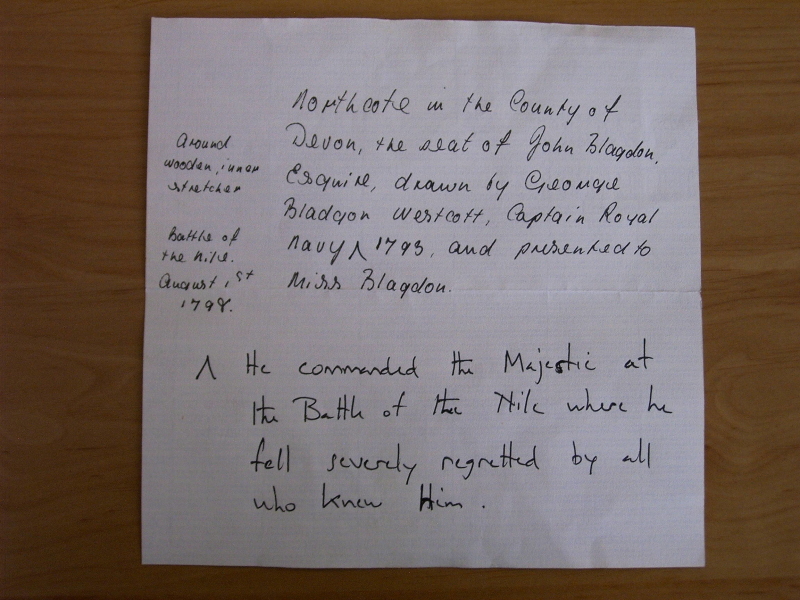 Northcote in the County of
Devon, the seat of John Blagdon,
Esquire, drawn by George
Bladgon Westcott, Captain Royal
Navy ⋀ 1793, and presented to
Miss Blagdon.
Around
wooden inner
stretcher
Battle of
the Nile.
August 1st
1798.
⋀ He commanded the Majestic at
the Battle of the Nile where he
fell severely regretted by all
who knew Him.